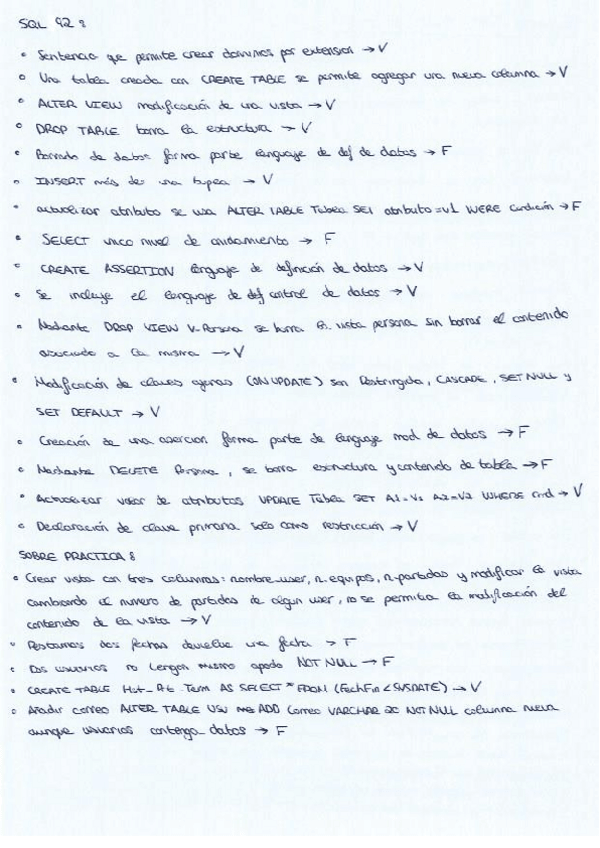 SQL 92:
• Sentencia que permite crear dominios por extension → V
• Una tabla creada con CREATE TABLE se permite agregar una nueva columna → V
• ALTER VIEW modificación de una vista → V
• DROP TABLE borra la estructura → V
• Borrado de datos forma parte lenguaje de def de datos → F
• INSERT más de una tupla → V
• actualizar atributo se usa ALTER TABLE Tabla SET atributo=v1 WERE condición → F
• SELECT unico nivel de anidamiento → F
• CREATE ASSERTION lenguaje de definición de datos → V
• Se incluye el lenguaje de def control de datos → V
• Mediante DROP VIEW V-Persona se borra la vista persona sin borrar el contenido
asociado a la misma → V
• Modificación de claves ajenas (ON UPDATE) son Restringida, CASCADE, SET NULL y
SET DEFAULT → V
• Creación de una asercion forma parte de lenguaje mod de datos → F
• Mediante DELETE Persona, se borra estructura y contenido de tabla → F
• Actualizar valor de atributos UPDATE Tabla SET A1=V1 A2=V2 WHERE cond → V
• Declaración de clave primaria solo como restricción → V
SOBRE PRACTICA:
• Crear vista con tres columnas: nombre_user, n_equipos, n_partidas y modificar la vista
cambiando el numero de partidas de algun user, no se permitia la modificación del
contenido de la vista → V
• Restamos dos fechas devuelve una fecha → F
• Dos usuarios no tengan mismo apodo NOT NULL → F
• CREATE TABLE Hist_Pt_Term AS SELECT * FROM (FechFin < SYSDATE) → V
• Añadir correo ALTER TABLE ADD Correo VARCHAR 20 NOT NULL columna nueva
aunque usuarios contenga datos → F